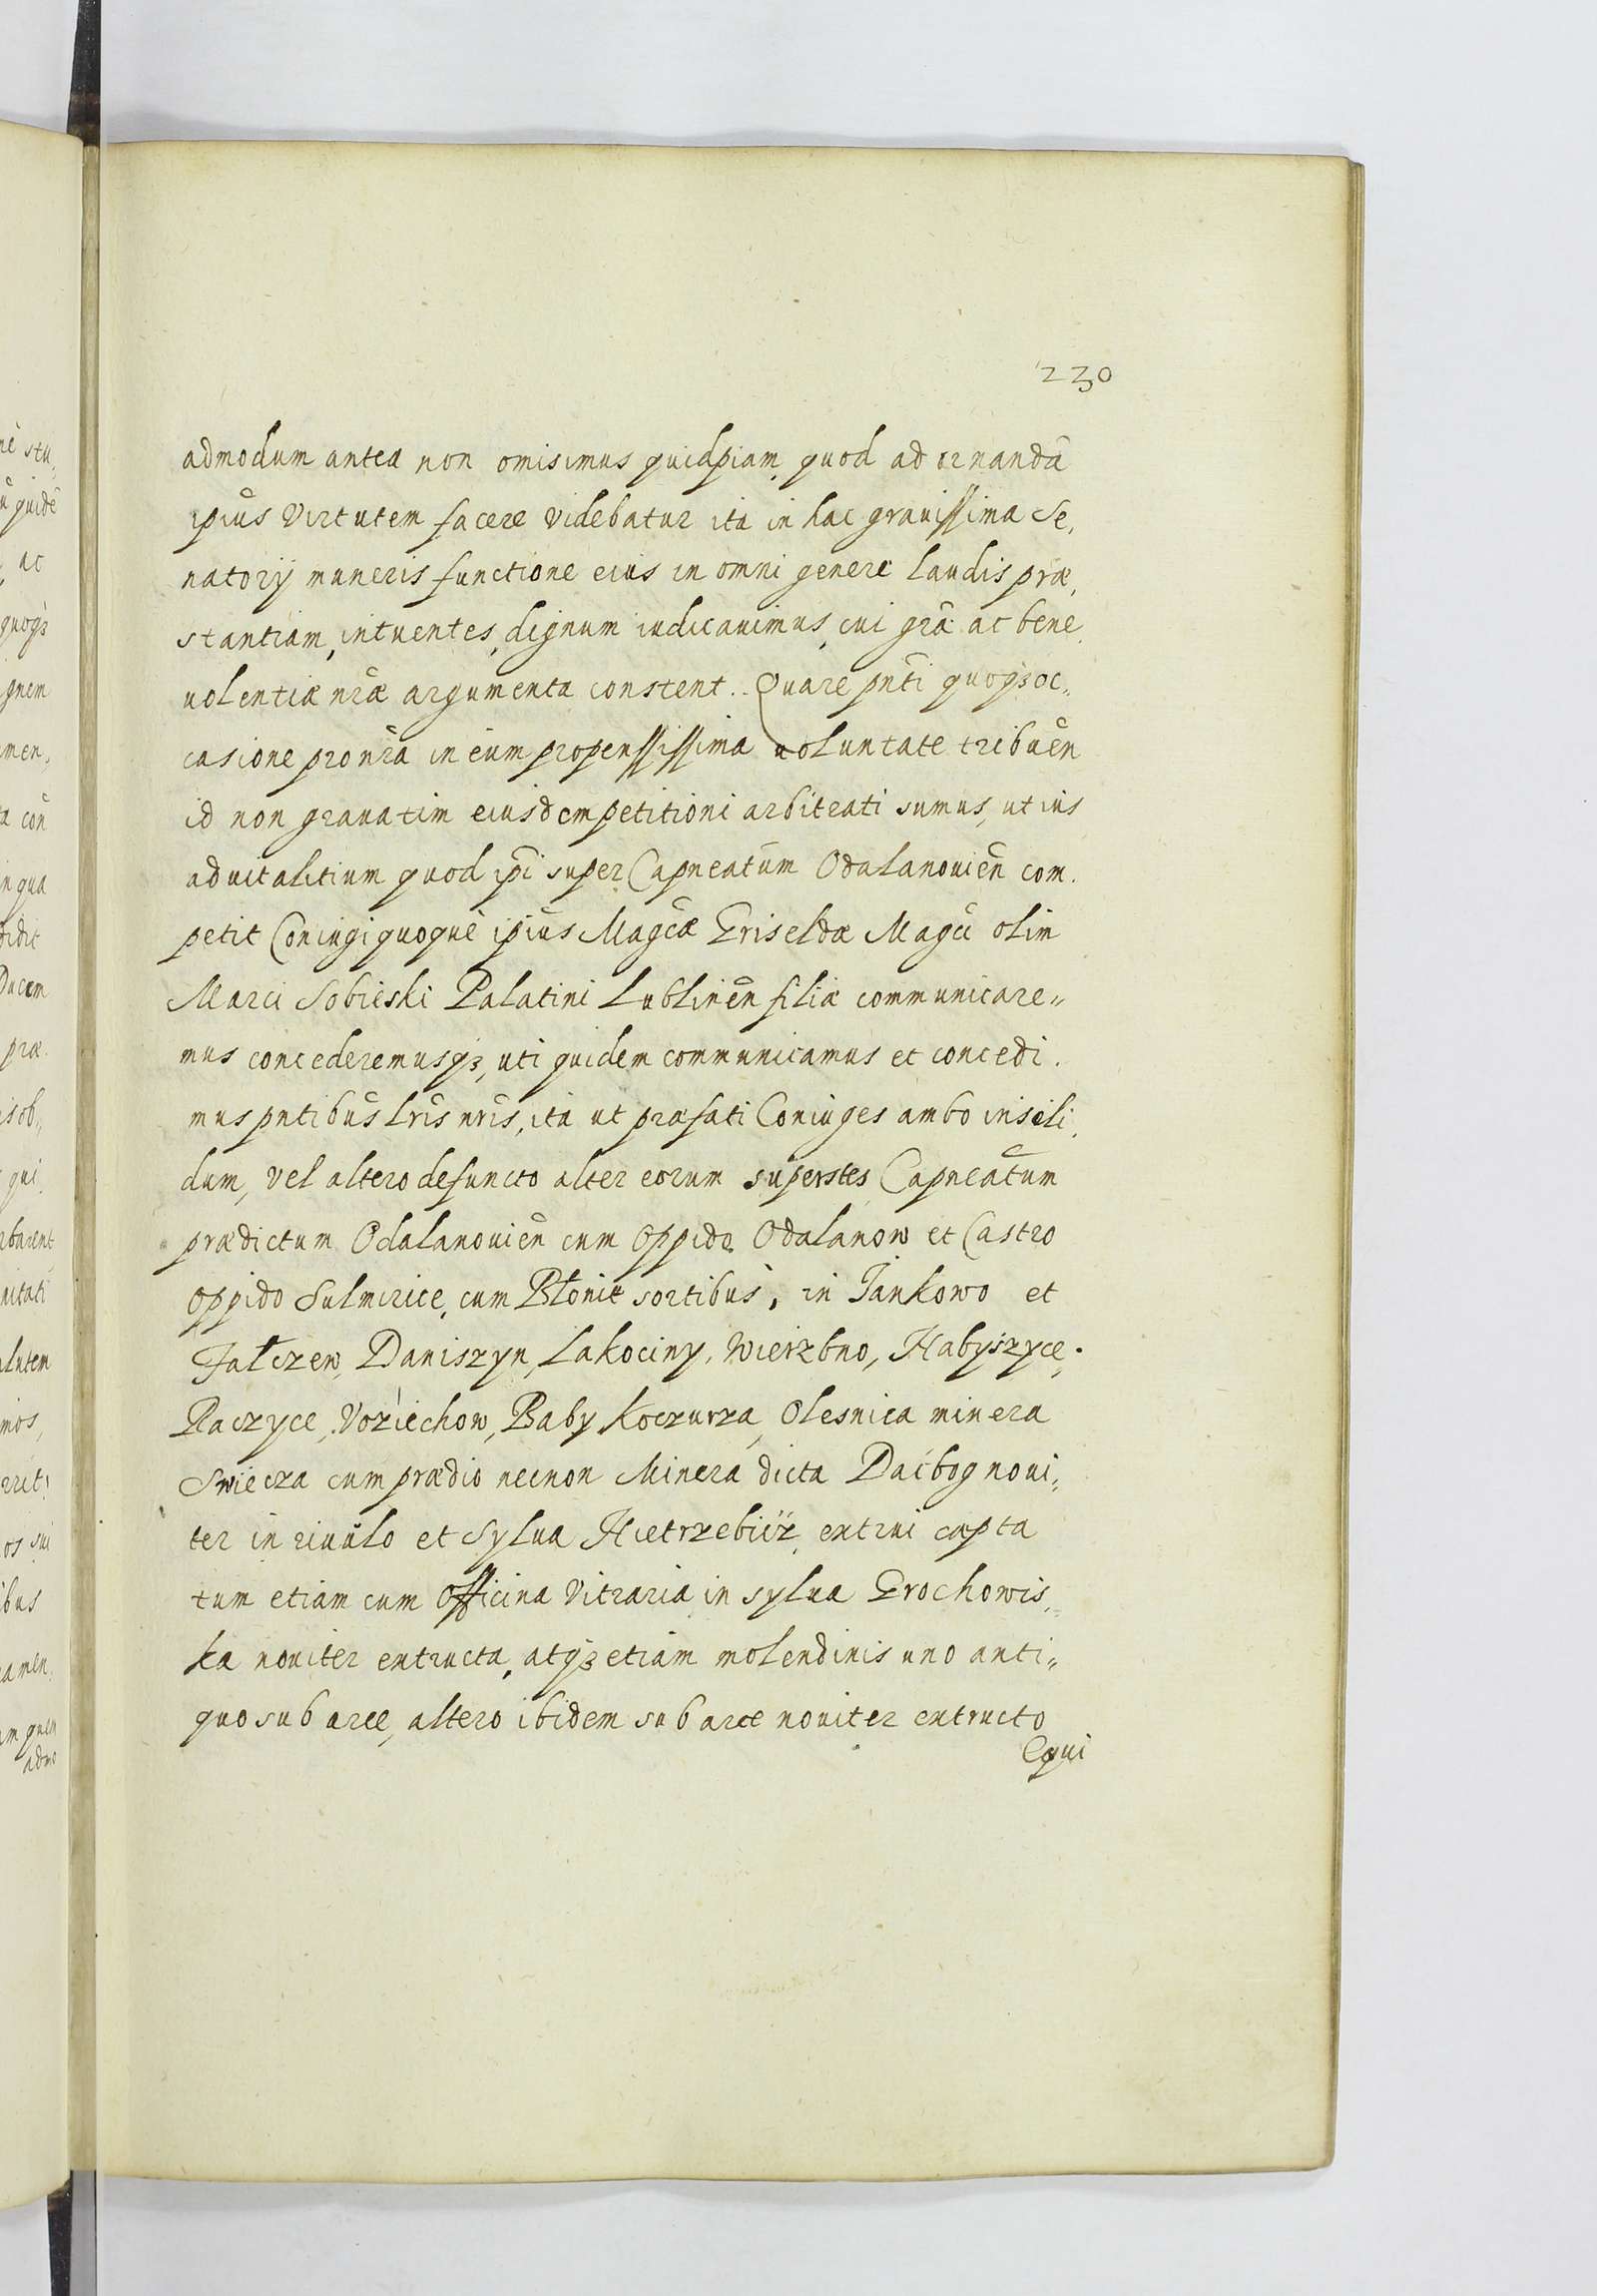 230
admodum antea non omisimus quidpiam quod ad ornandā
ipiūs Virtutem facere Videbatur ita in hac grauissima Se,
natorij muneris functione eius in omni genere Laudis præ,
stantiam, intuentes, dignum iudicauimus, cui grā ac bene,
uolentiæ nr̄æ argumenta constent. Quare pn̄ti quoqȝ oc,,
casione pro nr̄a in eum propenssissima uoluntate tribuēn
id non grauatim eiusdem petitioni arbitrati sumus, ut ius
aduitalitium quod ip̄i super Capneatūm Odalanouiēn com.
petit Coniugi quoquè ipiūs Magc̄æ Griseldæ Magci olim
Marci Sobieski Palatini Lublinēn filiæ communicare,,
mus concederemusqȝ, uti quidem communicamus et concedi.
mus pn̄tibus Lr̄is nr̄is, ita ut præfati Coniuges ambo insoli,
dum, Vel altero defuncto alter eorum superstes Capneatūm
prædictum Odalanouiēn cum Oppido Odalanow et Castro
Oppido Sulmirice, cum Błonie sortibus, in Jankowo et
Jałczew, Daniszyn, Lakociny, Wierzbno, Habyszyce,
Raczyce, Voziechow, Baby Koczurza, Olesnica minera
Swiecza cum prædio necnon Minera dicta Daibog noui,,
ter in riuulo et Sylua extrui capta
tum etiam cum Officina Vitraria in sylua Grochowis,,
ka nouiter extructa, atqȝ etiam molendinis uno anti,,
quo sub arce, altero ibidem sub arce nouiter extructo
Equi